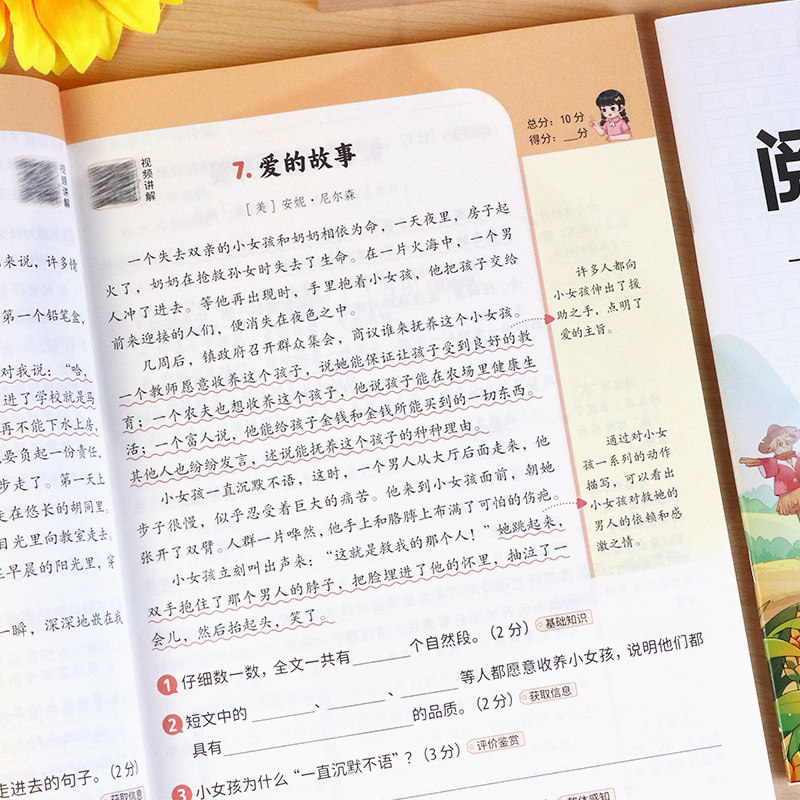 视频讲解
来说，许多情
第一个铅笔盒，
对我说：“哈，
进了学校就是马
再不能下水上房，
要负起一份责任，
步走了。第一天上
走在悠长的胡同里，
目光里向教室走去。
在早晨的阳光里，穿
一瞬，深深地嵌在我
走进去的句子。（2分）
获取信息
视频讲解
7. 爱的故事
［美］安妮·尼尔森
总分：10分
得分：__分
一个失去双亲的小女孩和奶奶相依为命，一天夜里，房子起
火了，奶奶在抢救孙女时失去了生命。在一片火海中，一个男
人冲了进去。等他再出现时，手里抱着小女孩，他把孩子交给
前来迎接的人们，便消失在夜色之中。
几周后，镇政府召开群众集会，商议谁来抚养这个小女孩。
一个教师愿意收养这个孩子，说她能保证让孩子受到良好的教
育；一个农夫也想收养这个孩子，他说孩子能在农场里健康生
活；一个富人说，他能给孩子金钱和金钱所能买到的一切东西。
其他人也纷纷发言，述说能抚养这个孩子的种种理由。
小女孩一直沉默不语，这时，一个男人从大厅后面走来，他
步子很慢，似乎忍受着巨大的痛苦。他来到小女孩面前，朝她
张开了双臂。人群一片哗然，他手上和胳膊上布满了可怕的伤疤。
小女孩立刻叫出声来：“这就是救我的那个人！”她跳起来，
双手抱住了那个男人的脖子，把脸埋进了他的怀里，抽泣了一
会儿，然后抬起头，笑了。
许多人都向
小女孩伸出了援
助之手，点明了
爱的主旨。
通过对小女
孩一系列的动作
描写，可以看出
小女孩对救她的
男人的依赖和感
激之情。
1 仔细数一数，全文一共有______个自然段。（2分） 基础知识
2 短文中的______、______、______等人都愿意收养小女孩，说明他们都
具有____________________的品质。（2分） 获取信息
3 小女孩为什么“一直沉默不语”？（3分） 评价鉴赏
整体感知
阅